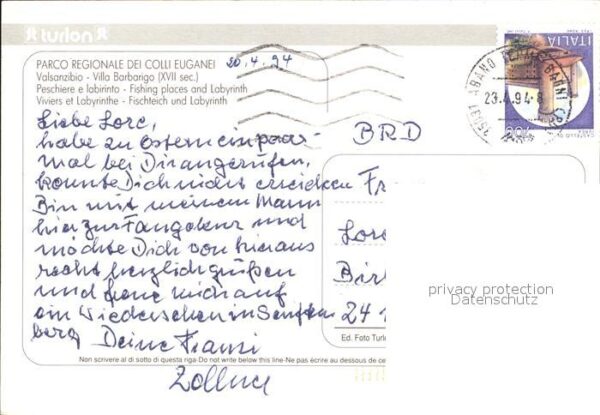 turlon
PARCO REGIONALE DEI COLLI EUGANEI
Valsanzibio - Villa Barbarigo (XVII sec.)
Peschiere e labirinto - Fishing places and Labyrinth
Viviers et Labyrinthe - Fischteich und Labyrinth
20.4.94
ITALIA
23.4.94
700
Liebe Lore,
habe zu Ostern ein paar
mal bei Dir angerufen,
konnte Dich nicht erreichen
Bin mit meinem Mann
hier zur Fangokur und
möchte Dich von hieraus
recht herzlich grüßen
und freue mich auf
ein Wiedersehen in Senften
berg Deine Franzi
Zollner
BRD
Fr
Lore
Bir
24
privacy protection
Datenschutz
Ed. Foto Turlo
Non scrivere al di sotto di questa riga-Do not write below this line-Ne pas écrire au dessous de ce